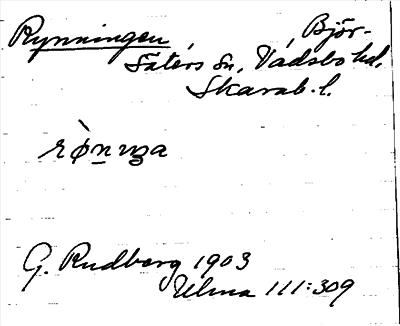 Rynningen, Björ-
säters sn, Vadsbo hd,
Skarab. l.
G. Rudberg 1903
Ulma 111:309